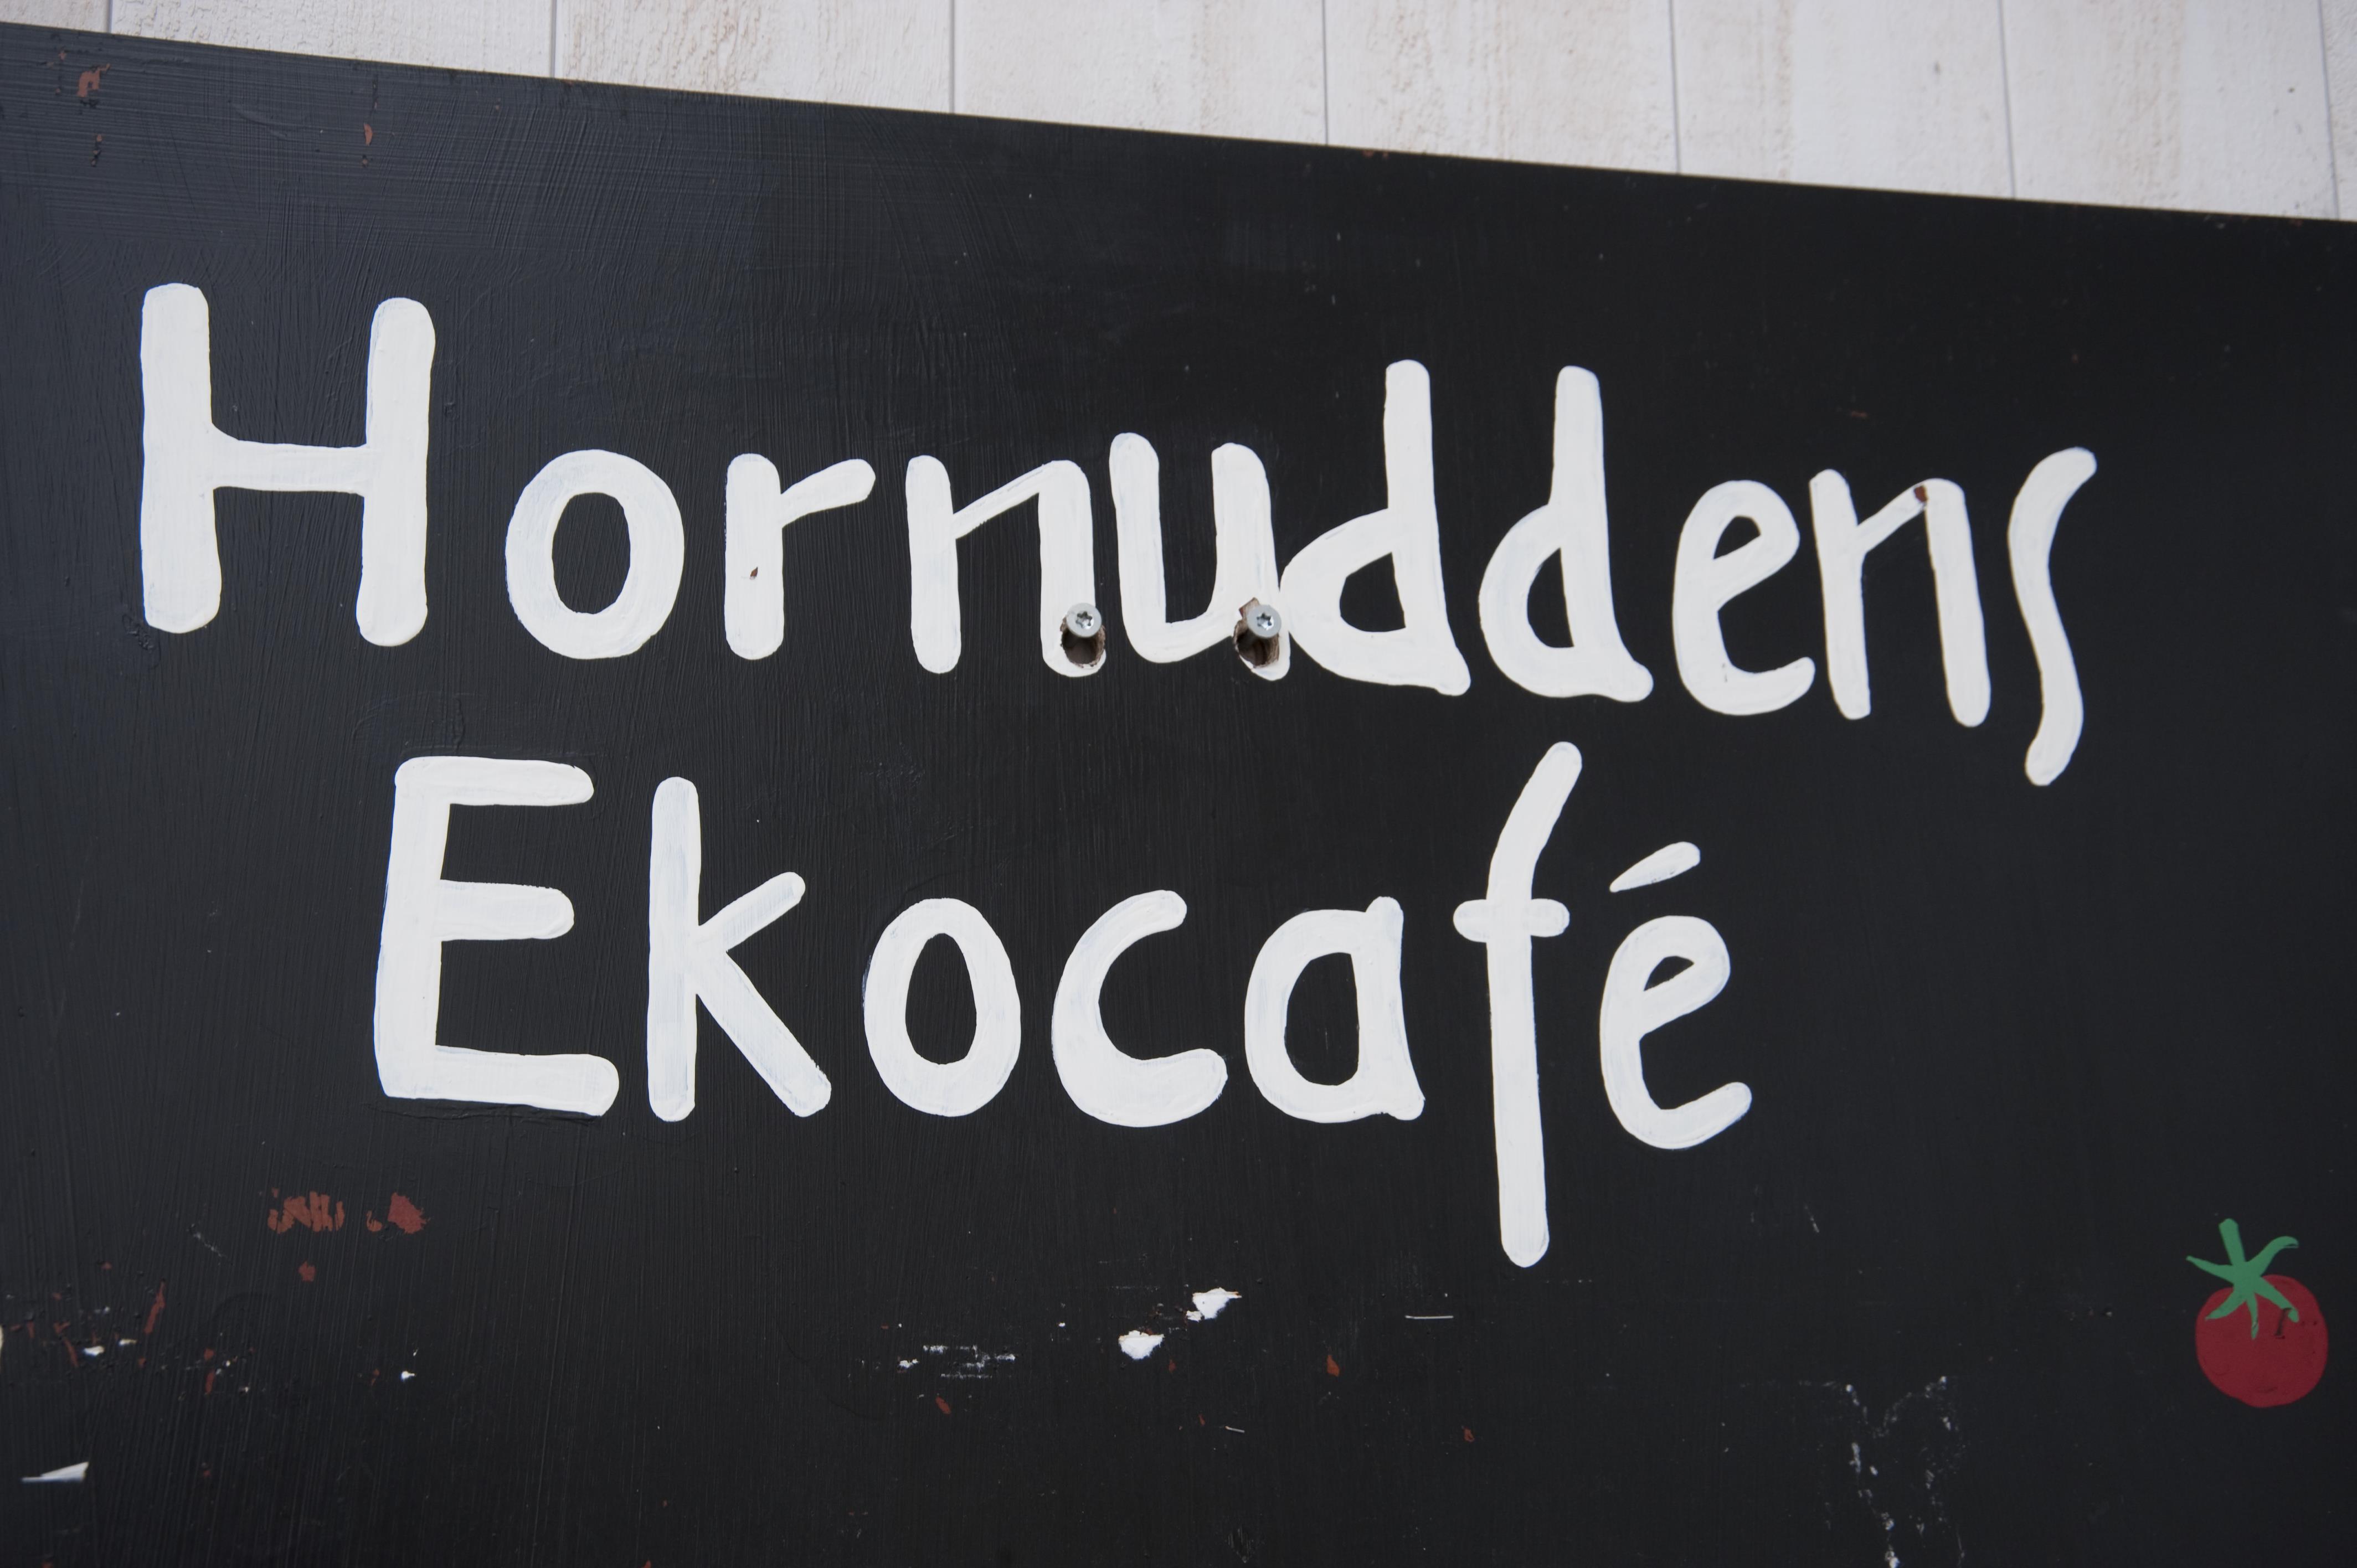 Hornuddens
Ekocafé